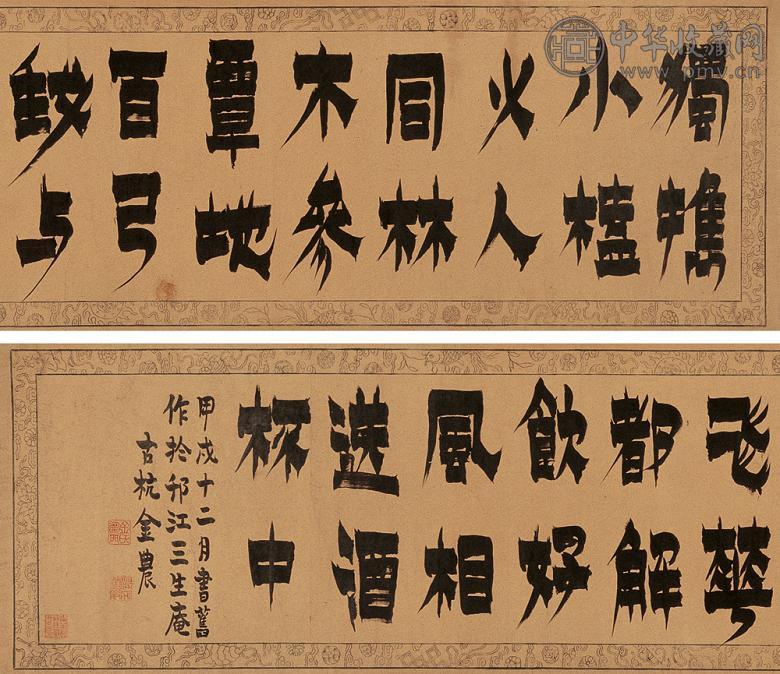 中华收藏网
www.pmv.cn
獨攜
小榼
少人
同林
木參
覃地
百弓
与
飛華
都解
飲好
風相
送酒
杯中
甲戌十二月書舊
作於邗江三生庵
古杭金農